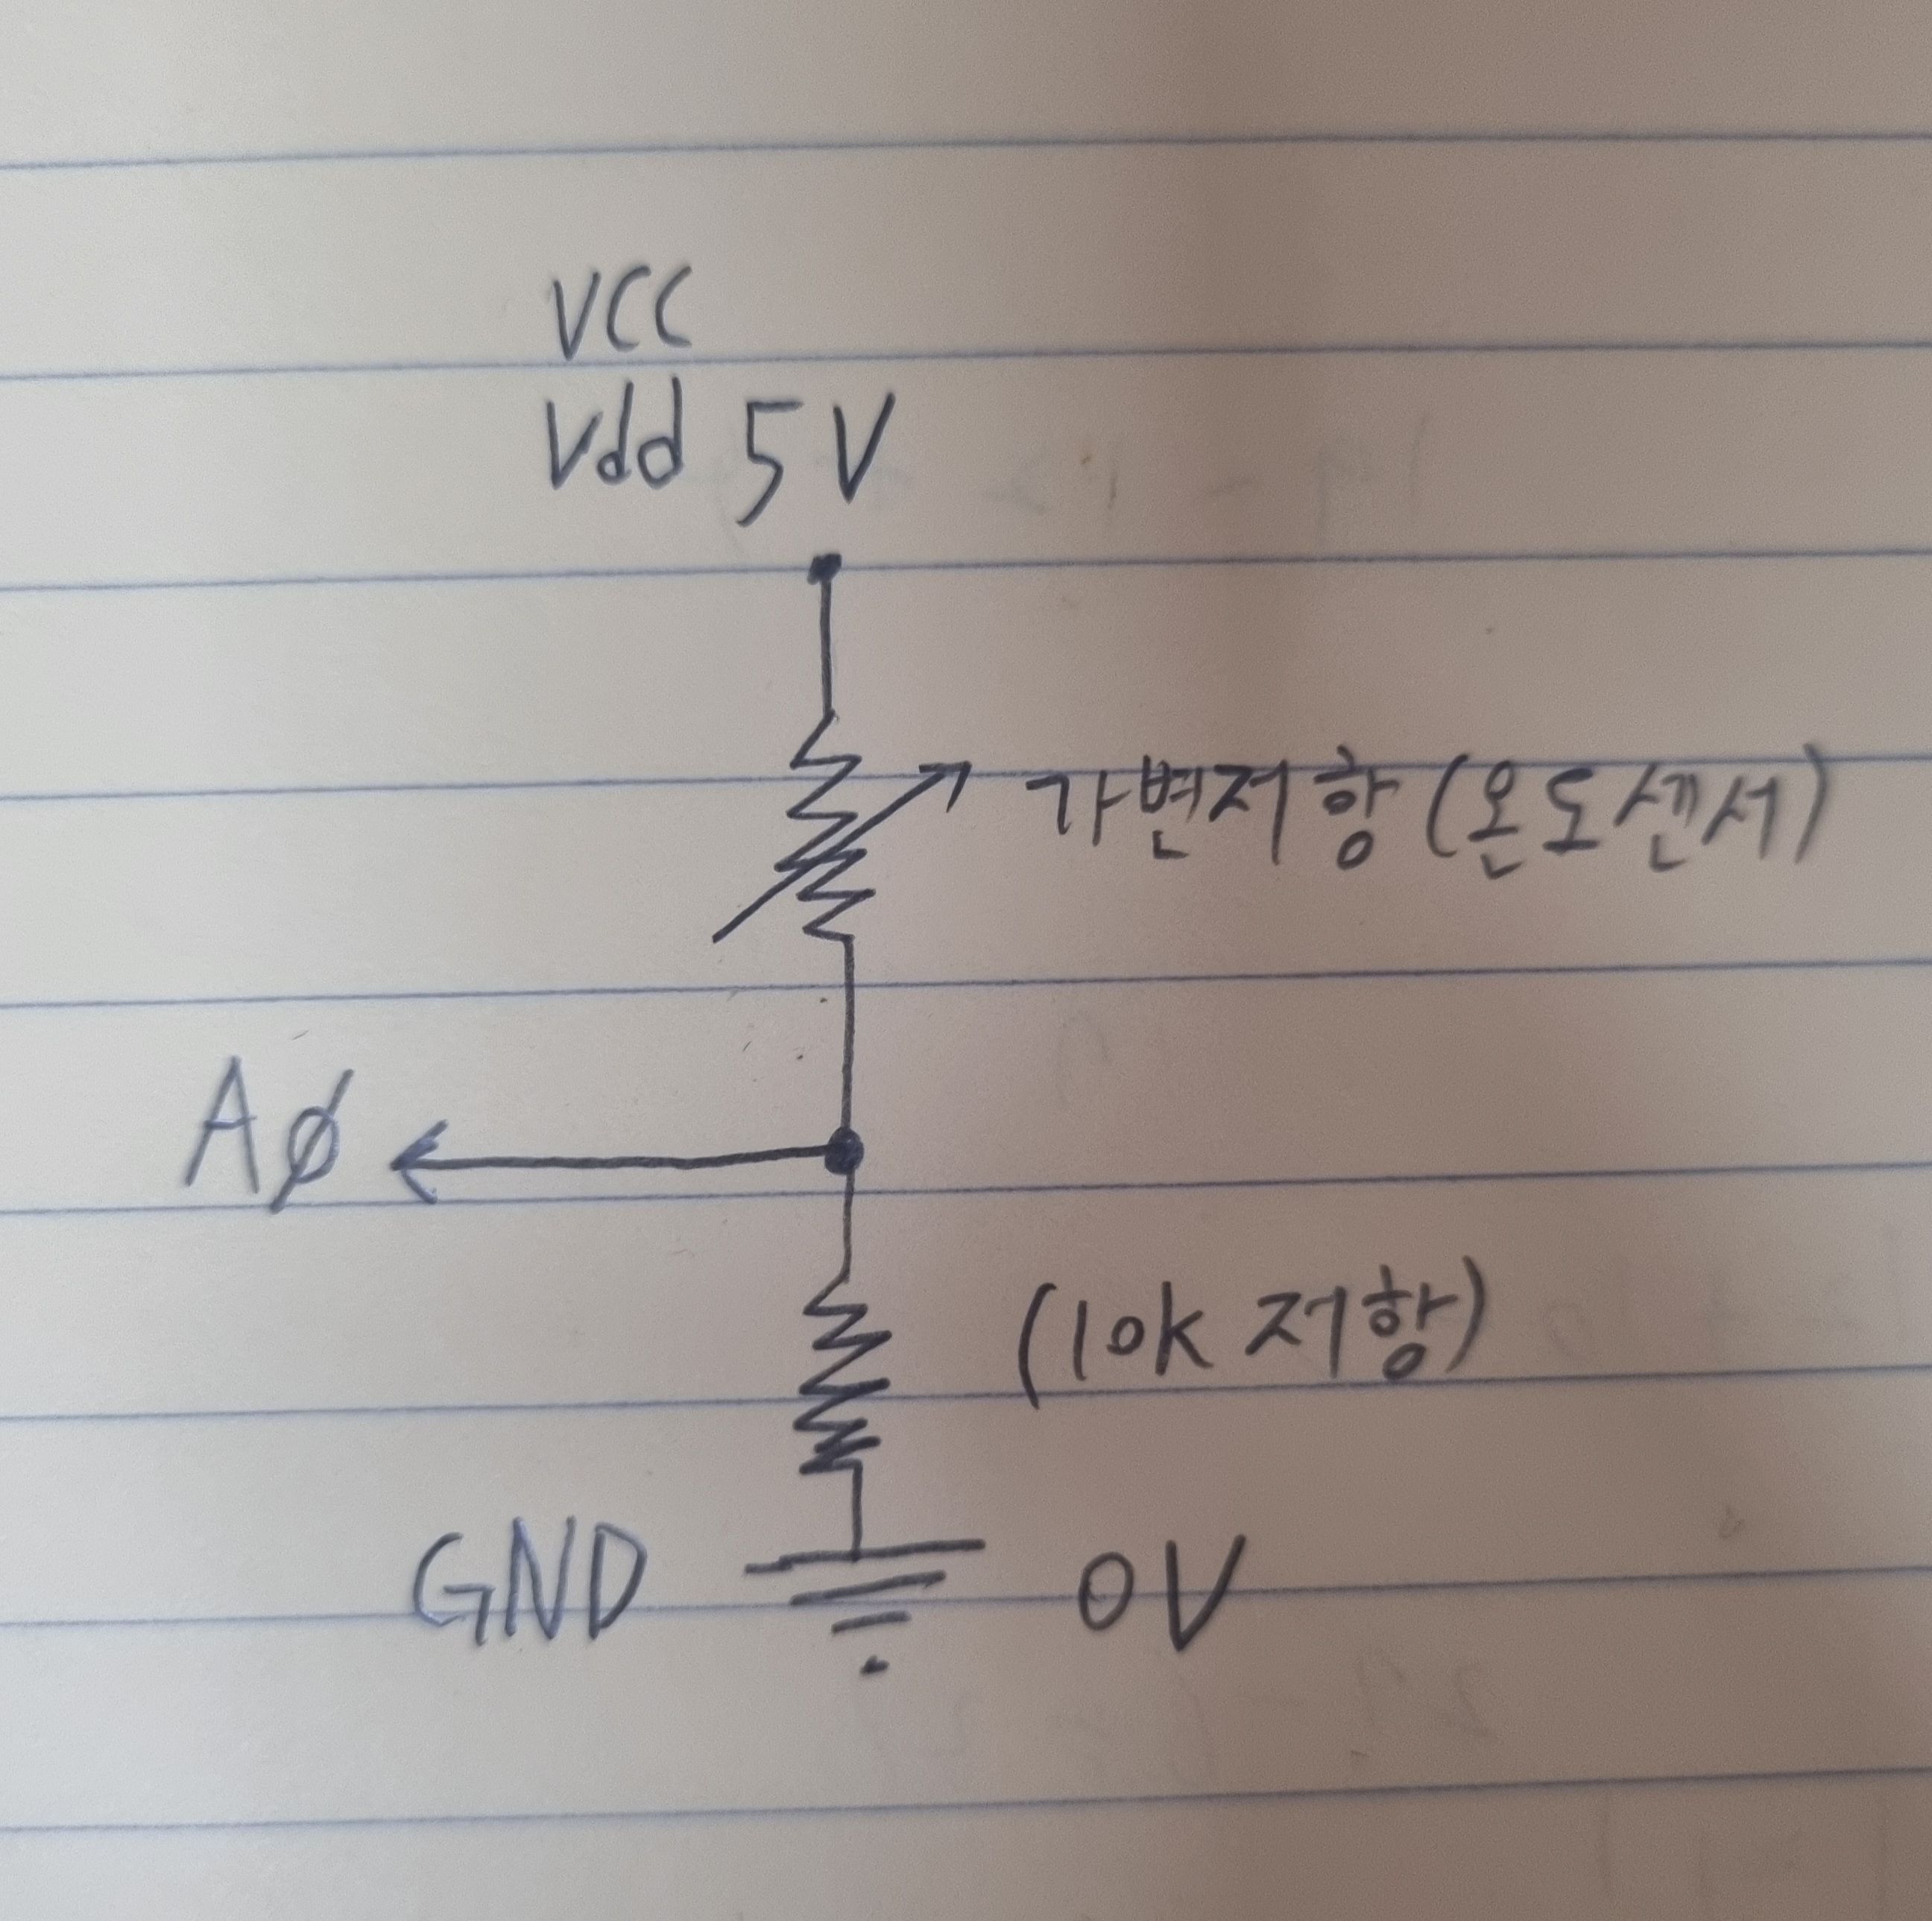 VCC
Vdd 5V
가변저항 (온도센서)
AØ
(10k 저항)
GND 0V